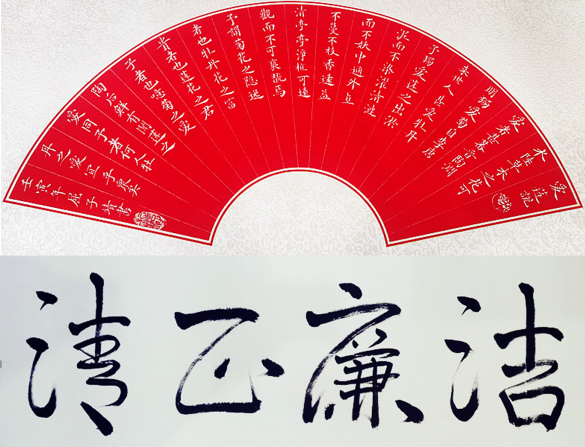 愛蓮説
水陸草木之花可
愛者甚蕃晉陶淵
明獨愛菊自李唐
来世人甚愛牡丹
予獨愛蓮之出淤
泥而不染濯清漣
而不妖中通外直
不蔓不枝香遠益
清亭亭浄植可遠
觀而不可褻翫焉
予謂菊花之隱逸
者也牡丹花之富
貴者也蓮花之君
子者也噫菊之愛
陶后鮮有聞蓮之
愛同予者何人牡
丹之愛宜乎衆矣
壬寅年
清正廉洁